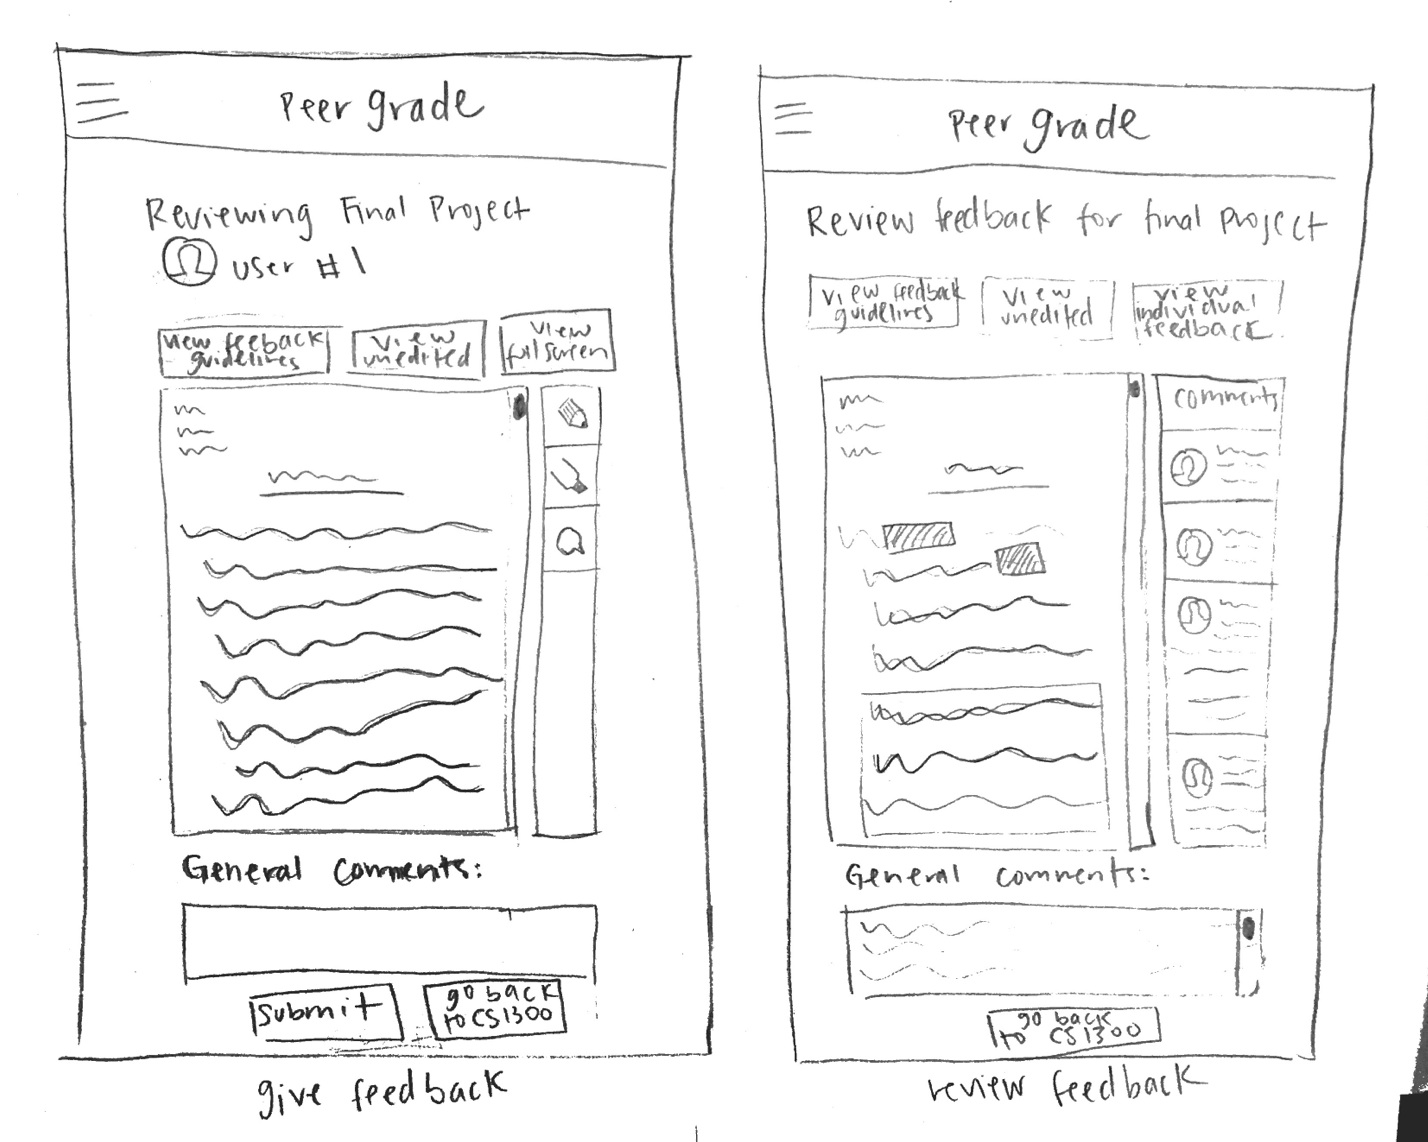 Peer grade
Reviewing Final Project
user #1
view feeback
guidelines
view
unedited
view
full screen
General Comments:
Submit
go back
to CS1300
give feedback
Peer grade
Review feedback for final project
view feedback
guidelines
view
unedited
view
individual
feedback
comments
General comments:
go back
to CS1300
review feedback